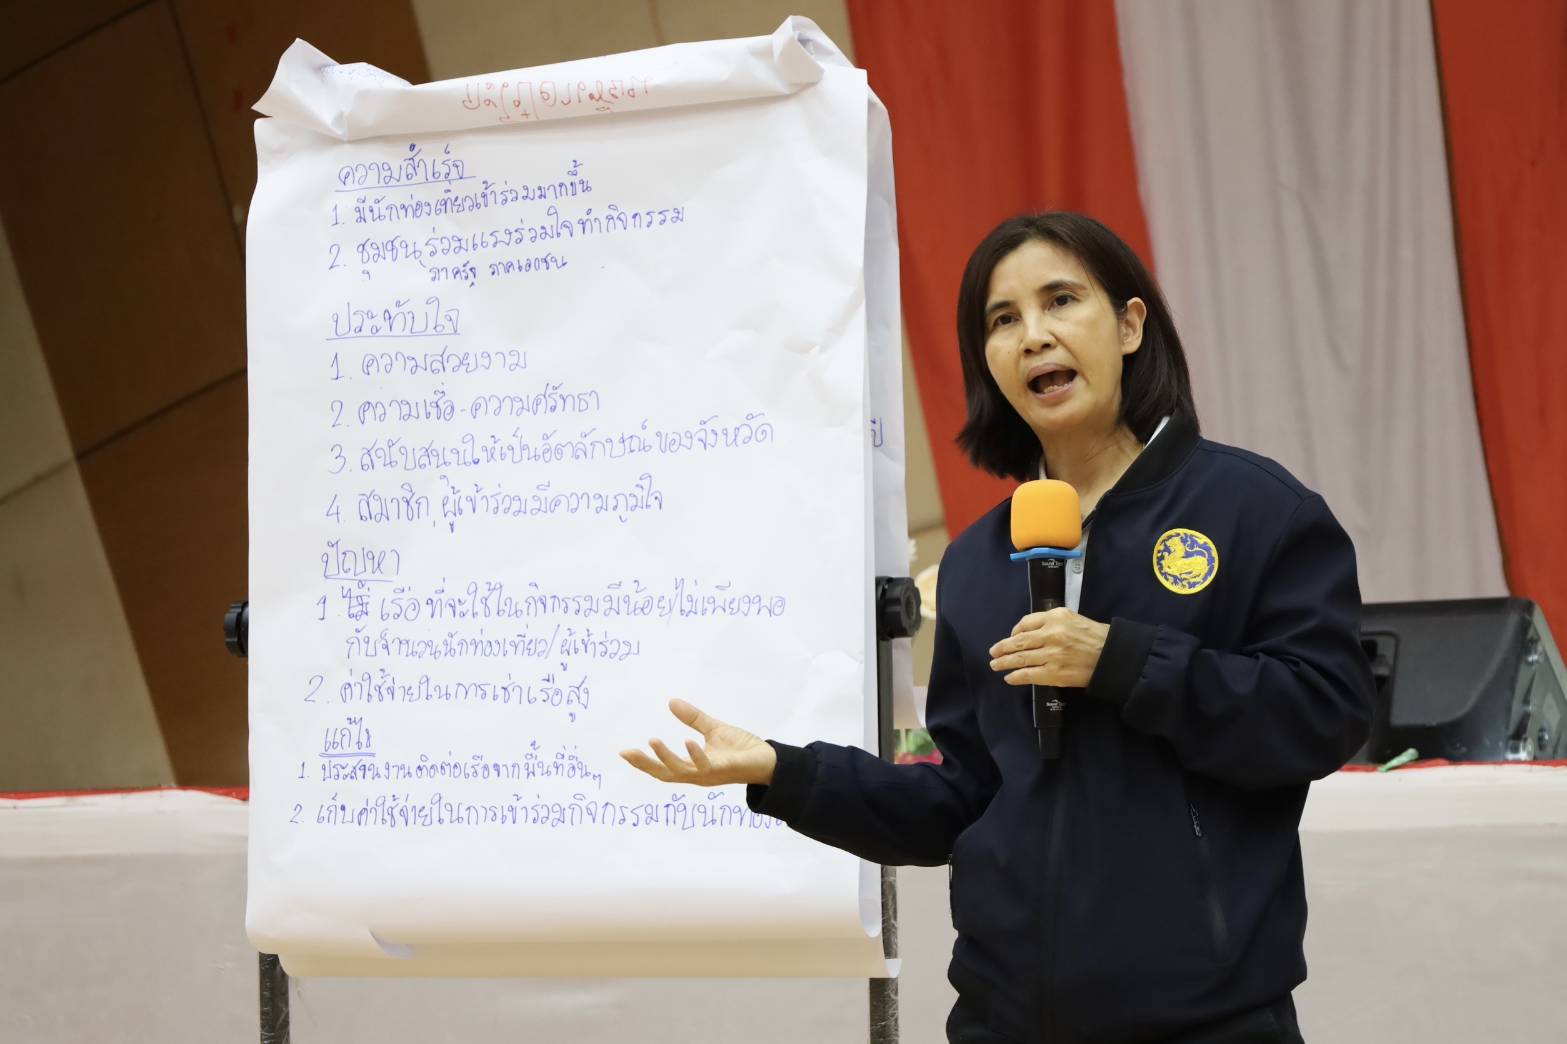 ความสำเร็จ
1. มีนักท่องเที่ยวเข้าร่วมมากขึ้น
2. ชุมชน ร่วมแรงร่วมใจทำกิจกรรม
ภาครัฐ ภาคเอกชน
ประทับใจ
1. ความสวยงาม
2. ความเชื่อ - ความศรัทธา
3. สนับสนุนให้เป็นอัตลักษณ์ของจังหวัด
4. สมาชิก ผู้เข้าร่วมมีความภูมิใจ
ปัญหา
1. เรือที่จะใช้ในกิจกรรมมีน้อย/ไม่เพียงพอ
กับจำนวนนักท่องเที่ยว/ผู้เข้าร่วม
2. ค่าใช้จ่ายในการเช่าเรือสูง
แก้ไข
1. ประสานงานติดต่อเรือจากพื้นที่อื่นๆ
2. เก็บค่าใช้จ่ายในการเข้าร่วมกิจกรรมกับนักท่อง